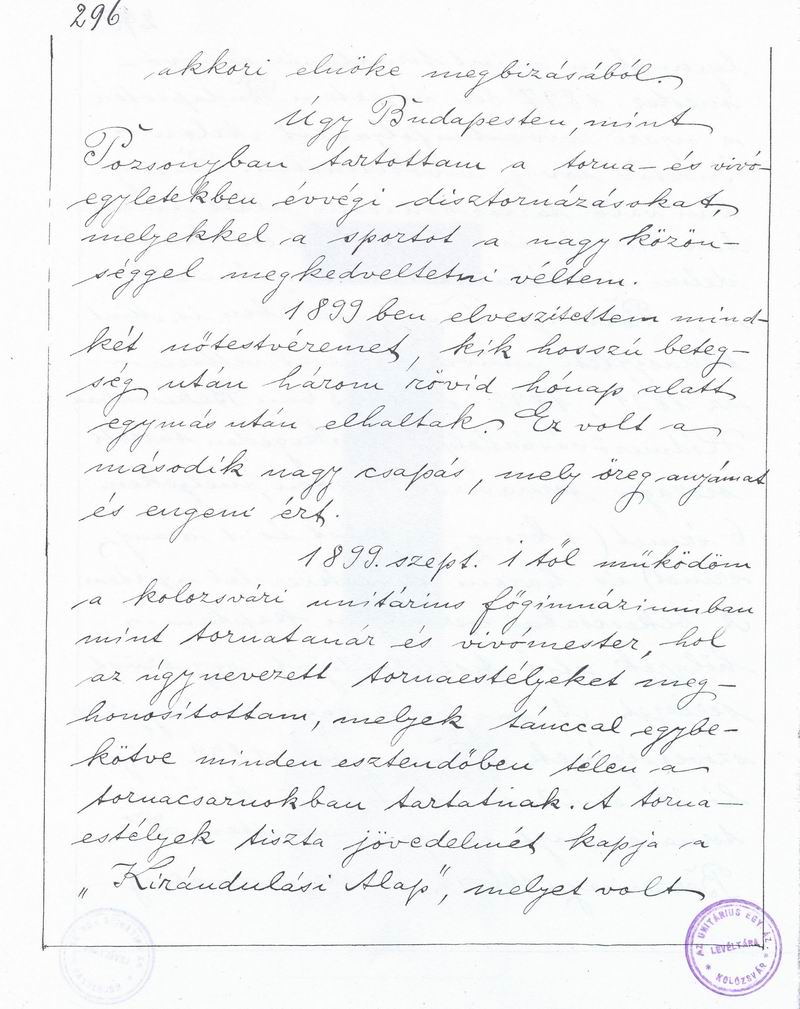 296
akkori elnöke megbizásából.
Úgy Budapesten, mint
Pozsonyban tartottam a torna- és vivó-
egyletekben évvégi disztornázásokat,
melyekkel a sportot a nagy közön-
séggel megkedveltetni véltem.
1899 ben elveszítettem mind-
két nőtestvéremet, kik hosszú beteg-
ség után három rövid hónap alatt
egymás után elhaltak. Ez volt a
második nagy csapás, mely öreg anyámat
és engem ért.
1899. szept. 1 től működöm
a kolozsvári unitárius főgimnáziumban
mint tornatanár és vivómester, hol
az úgynevezett tornaestélyeket meg-
honosítottam, melyek tánccal egybe-
kötve minden esztendőben télen a
tornacsarnokban tartatnak. A torna-
estélyek tiszta jövedelmét kapja a
„Kirándulási Alap", melyet volt
AZ UNITÁRIUS EGYHÁZ
LEVÉLTÁRA
* KOLOZSVÁR *